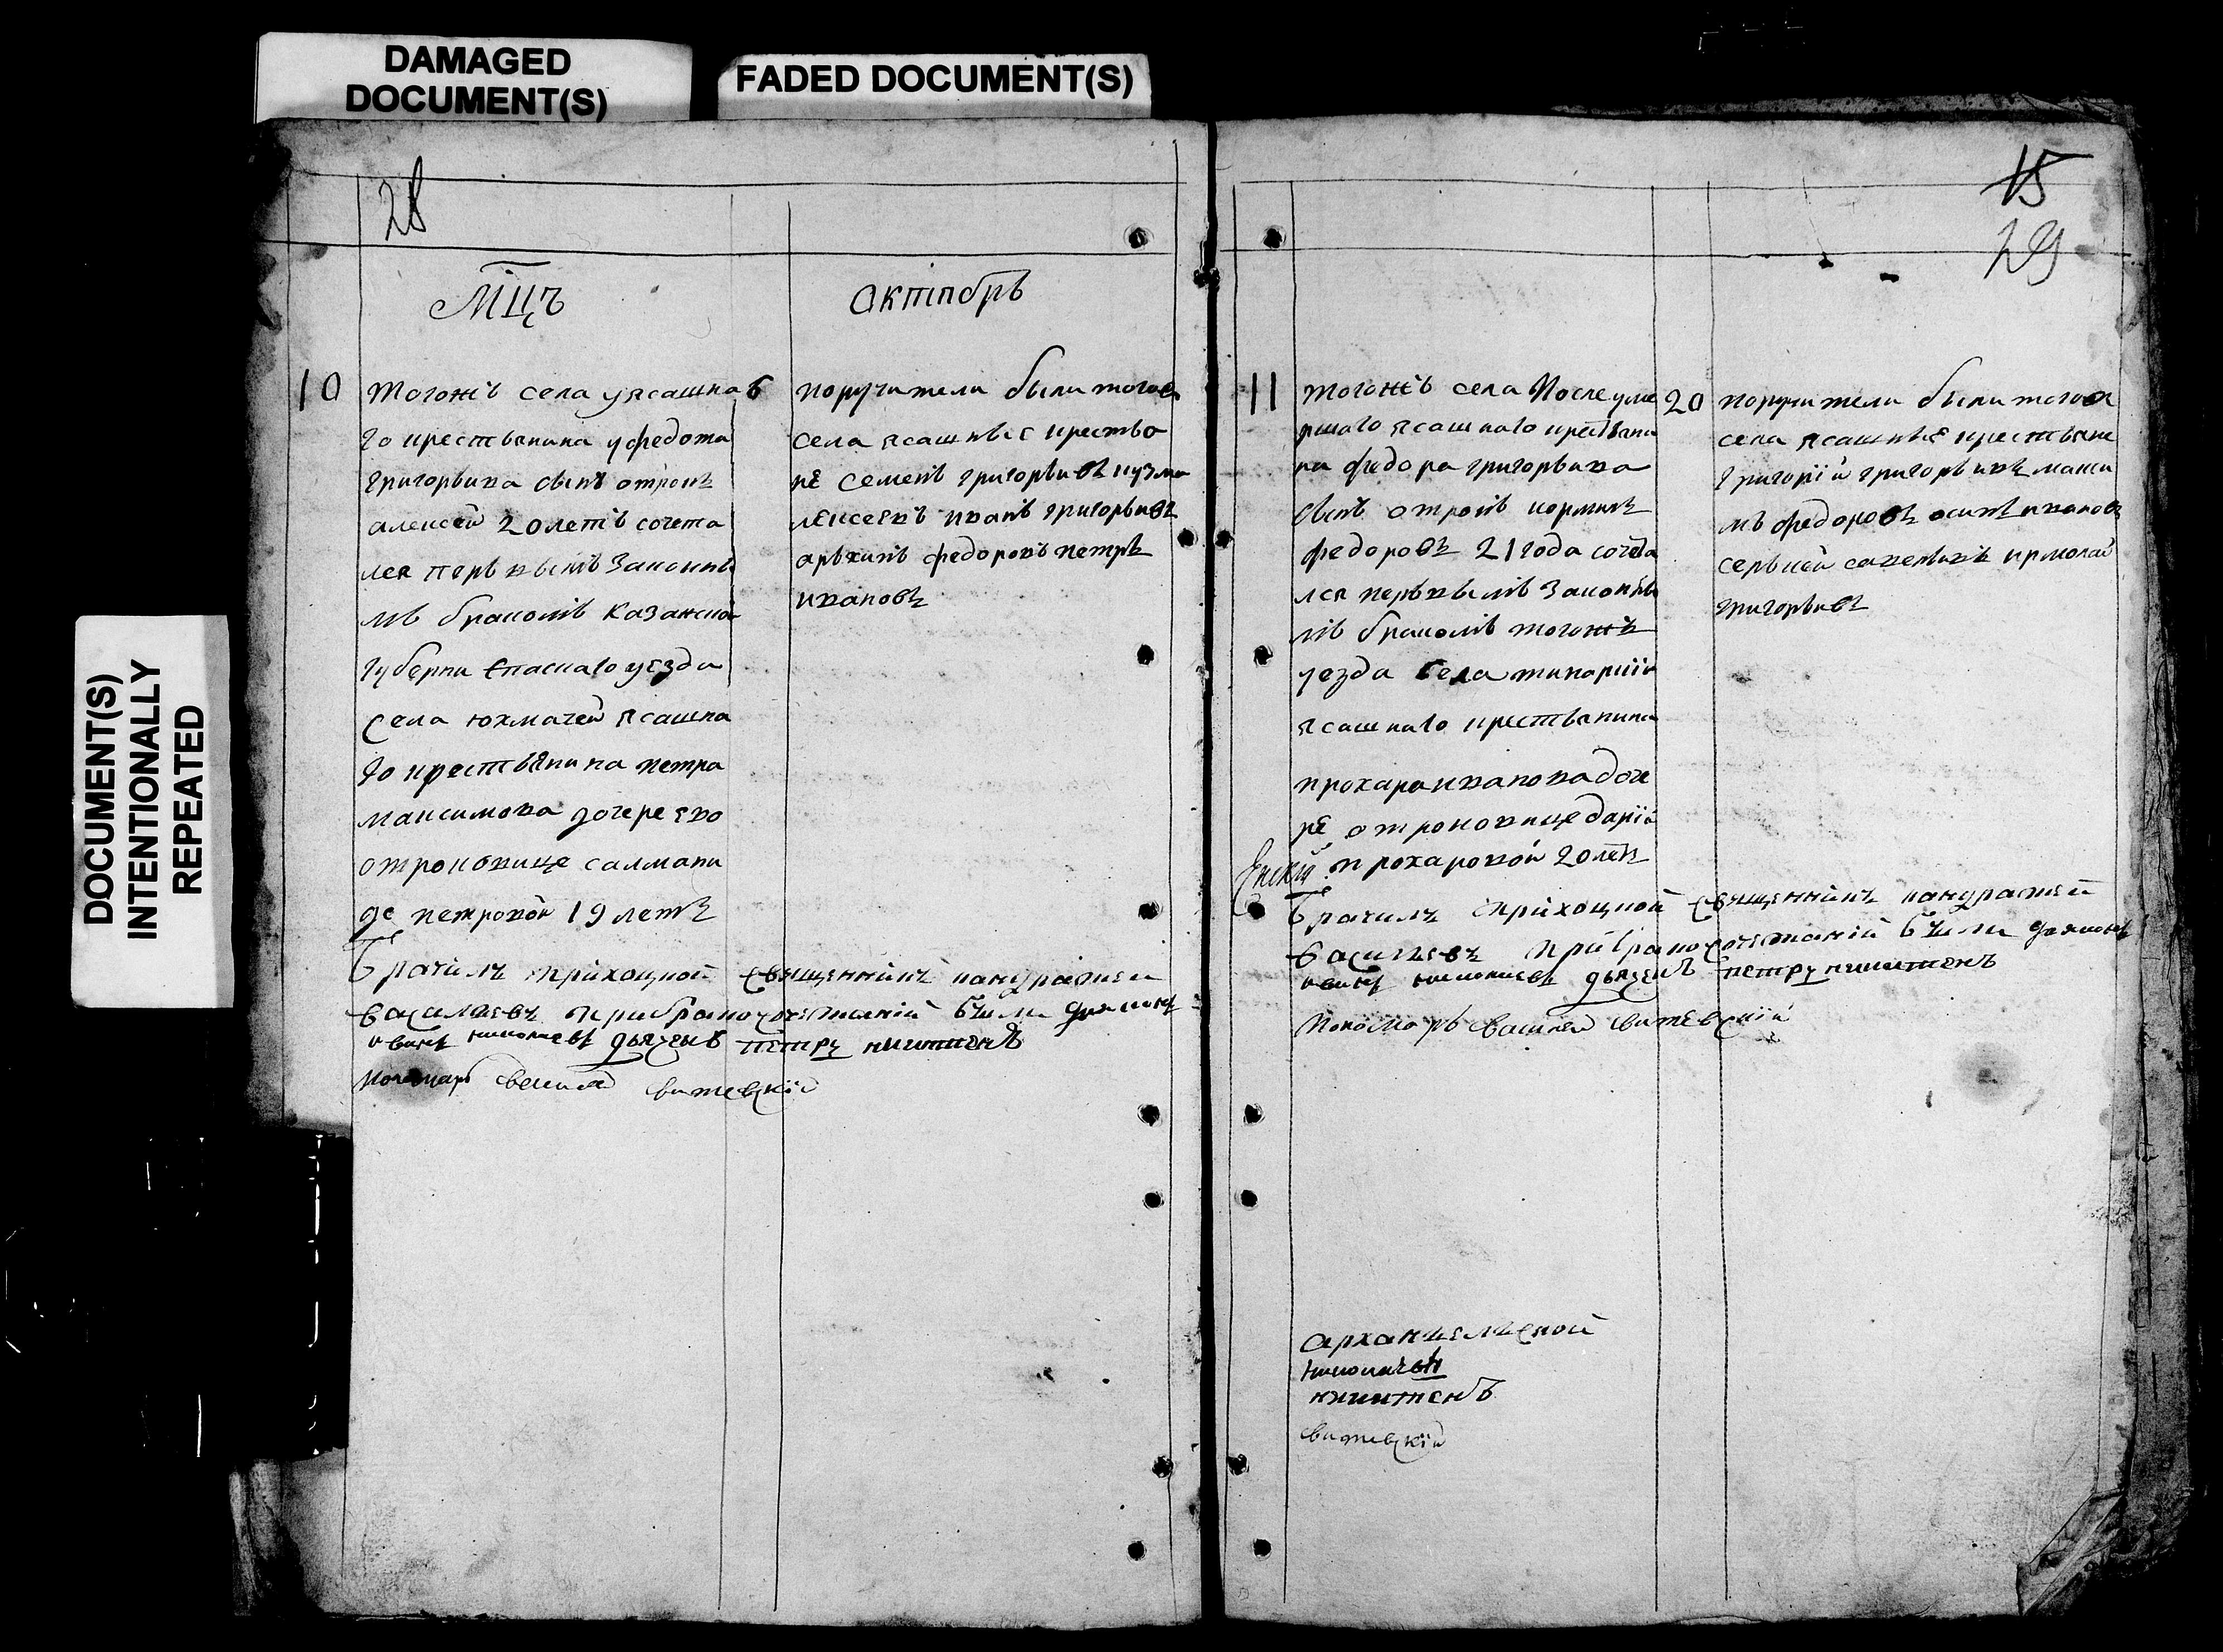 DAMAGED
DOCUMENT(S)
FADED DOCUMENT(S)
DOCUMENT(S)
INTENTIONALLY
REPEATED
28
Мцъ
Октябрь
10
тогожъ села уясашна
го крестьянина уфедота
григорьива сынъ отрокъ
алексей 20 летъ сочета
лся первымъ законны
мъ бракомъ казанской
губерни спаскаго уезда
села юхмачей ясашна
го крестьянина петра
максимова дочере ево
отроковице салмани
де петровой 19 летъ
6
поручители были тогож
села ясашные крестья
не семенъ григорьивъ кузма
лексеявъ иванъ григорьивъ
архипъ федоровъ петръ
ивановъ
брачилъ приходной священникъ кандратей
василиевъ при бракосочетаний были дияконъ
дьячекъ петръ никитенъ
понамарь василей витевский
15
29
11
тогожъ села после уме
ршаго ясашнаго крестьяни
на федора григорьива
сынъ отрокъ
федоровъ 21 года сочета
лся первымъ законны
мъ бракомъ тогожъ
уезда села
ясашнаго крестьянина
прохара иванова доче
ре отроковице дарий
прохаровой 20 летъ
20
поручители были тогож
села ясашные крестьяне
григорий григорьивъ макси
мъ федоровъ осипъ ивановъ
сергей савельивъ ирмолай
григорьивъ
брачилъ приходной священникъ кандратей
василиевъ при бракосочетаний были дияконъ
дьячекъ петръ никитенъ
понамарь василей витевский
архангелской
никитенъ
витевский